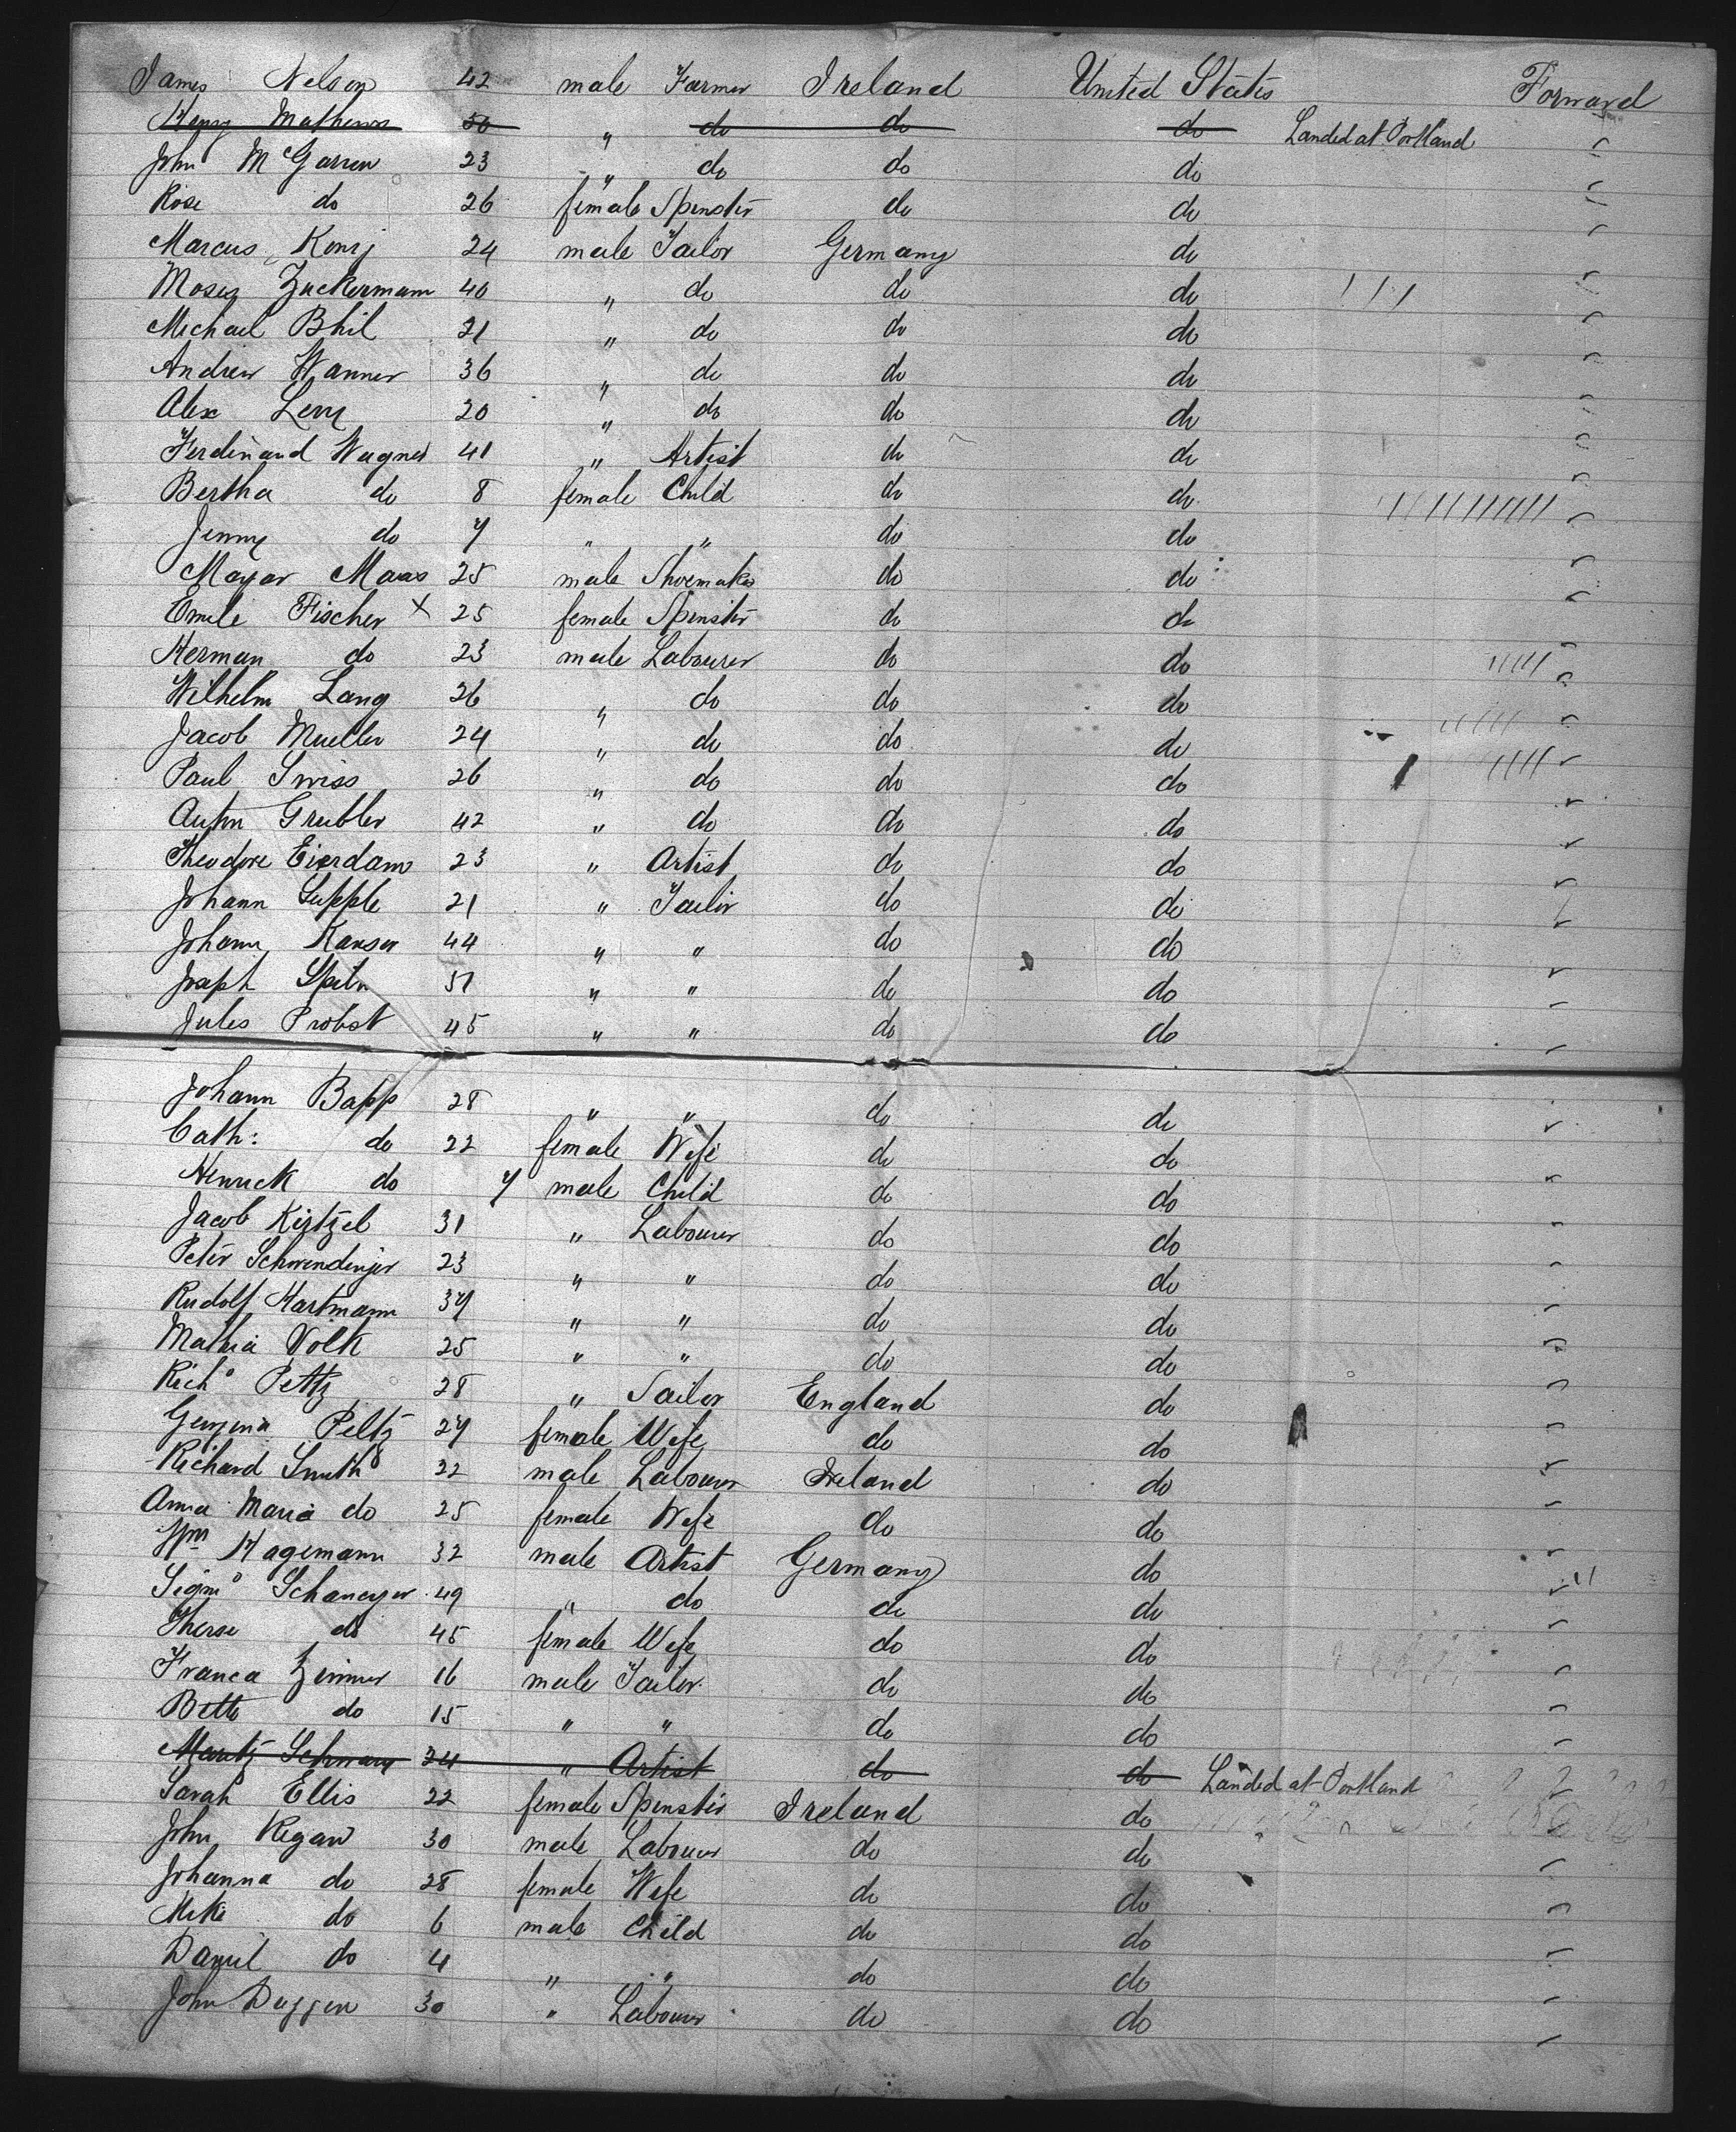 James Nelson 42 male Farmer Ireland United States Forward
Henry Mathews 50 " do do do Landed at Portland
John McGarren 23 " do do do
Rose do 26 female Spinster do do
Marcus 24 male Tailor Germany do
Moses Zuckermann 40 " do do do
Michael Bhil 21 " do do do
Andrew Wanner 36 " do do do
Alex Levy 20 " do do do
Ferdinand Wagner 41 " Artist do do
Bertha do 8 female Child do do
Jenny do 7 " " do do
Mayer Maas 25 male Shoemaker do do
Emile Fischer X 25 female Spinster do do
Herman do 23 male Labourer do do
Wilhelm Lang 26 " do do do
Jacob Mueller 24 " do do do
Paul Swiss 26 " do do do
Anton Grubler 42 " do do do
Theodore Eierdam 23 " Artist do do
Johann Supple 21 " Tailor do do
Johann Kanser 44 " " do do
Joseph 51 " " do do
Jules Probst 45 " " do do
Johann Bapp 28 " " do do
Cath: do 22 female Wife do do
Henrick do 7 male Child do do
Jacob Kirtzel 31 " Labourer do do
Peter Schwendinger 23 " " do do
Rudolf Hartmann 37 " " do do
Mathia Volk 25 " " do do
Richd Peltz 28 " Tailor England do
Georgina Peltz 27 female Wife do do
Richard Smith 32 male Labourer Ireland do
Anna Maria do 25 female Wife do do
Wm Hagemann 32 male Artist Germany do
Sigmd 49 " do do do
Therse do 45 female Wife do do
Franca Zimmer 16 male Tailor do do
Bette do 15 " " do do
Moritz Schwarz 24 " Artist do do Landed at Portland
Sarah Ellis 22 female Spinster Ireland do
John Regan 30 male Labourer do do
Johanna do 28 female Wife do do
Mike do 6 male Child do do
Daniel do 4 " " do do
John Duggen 30 " Labourer do do